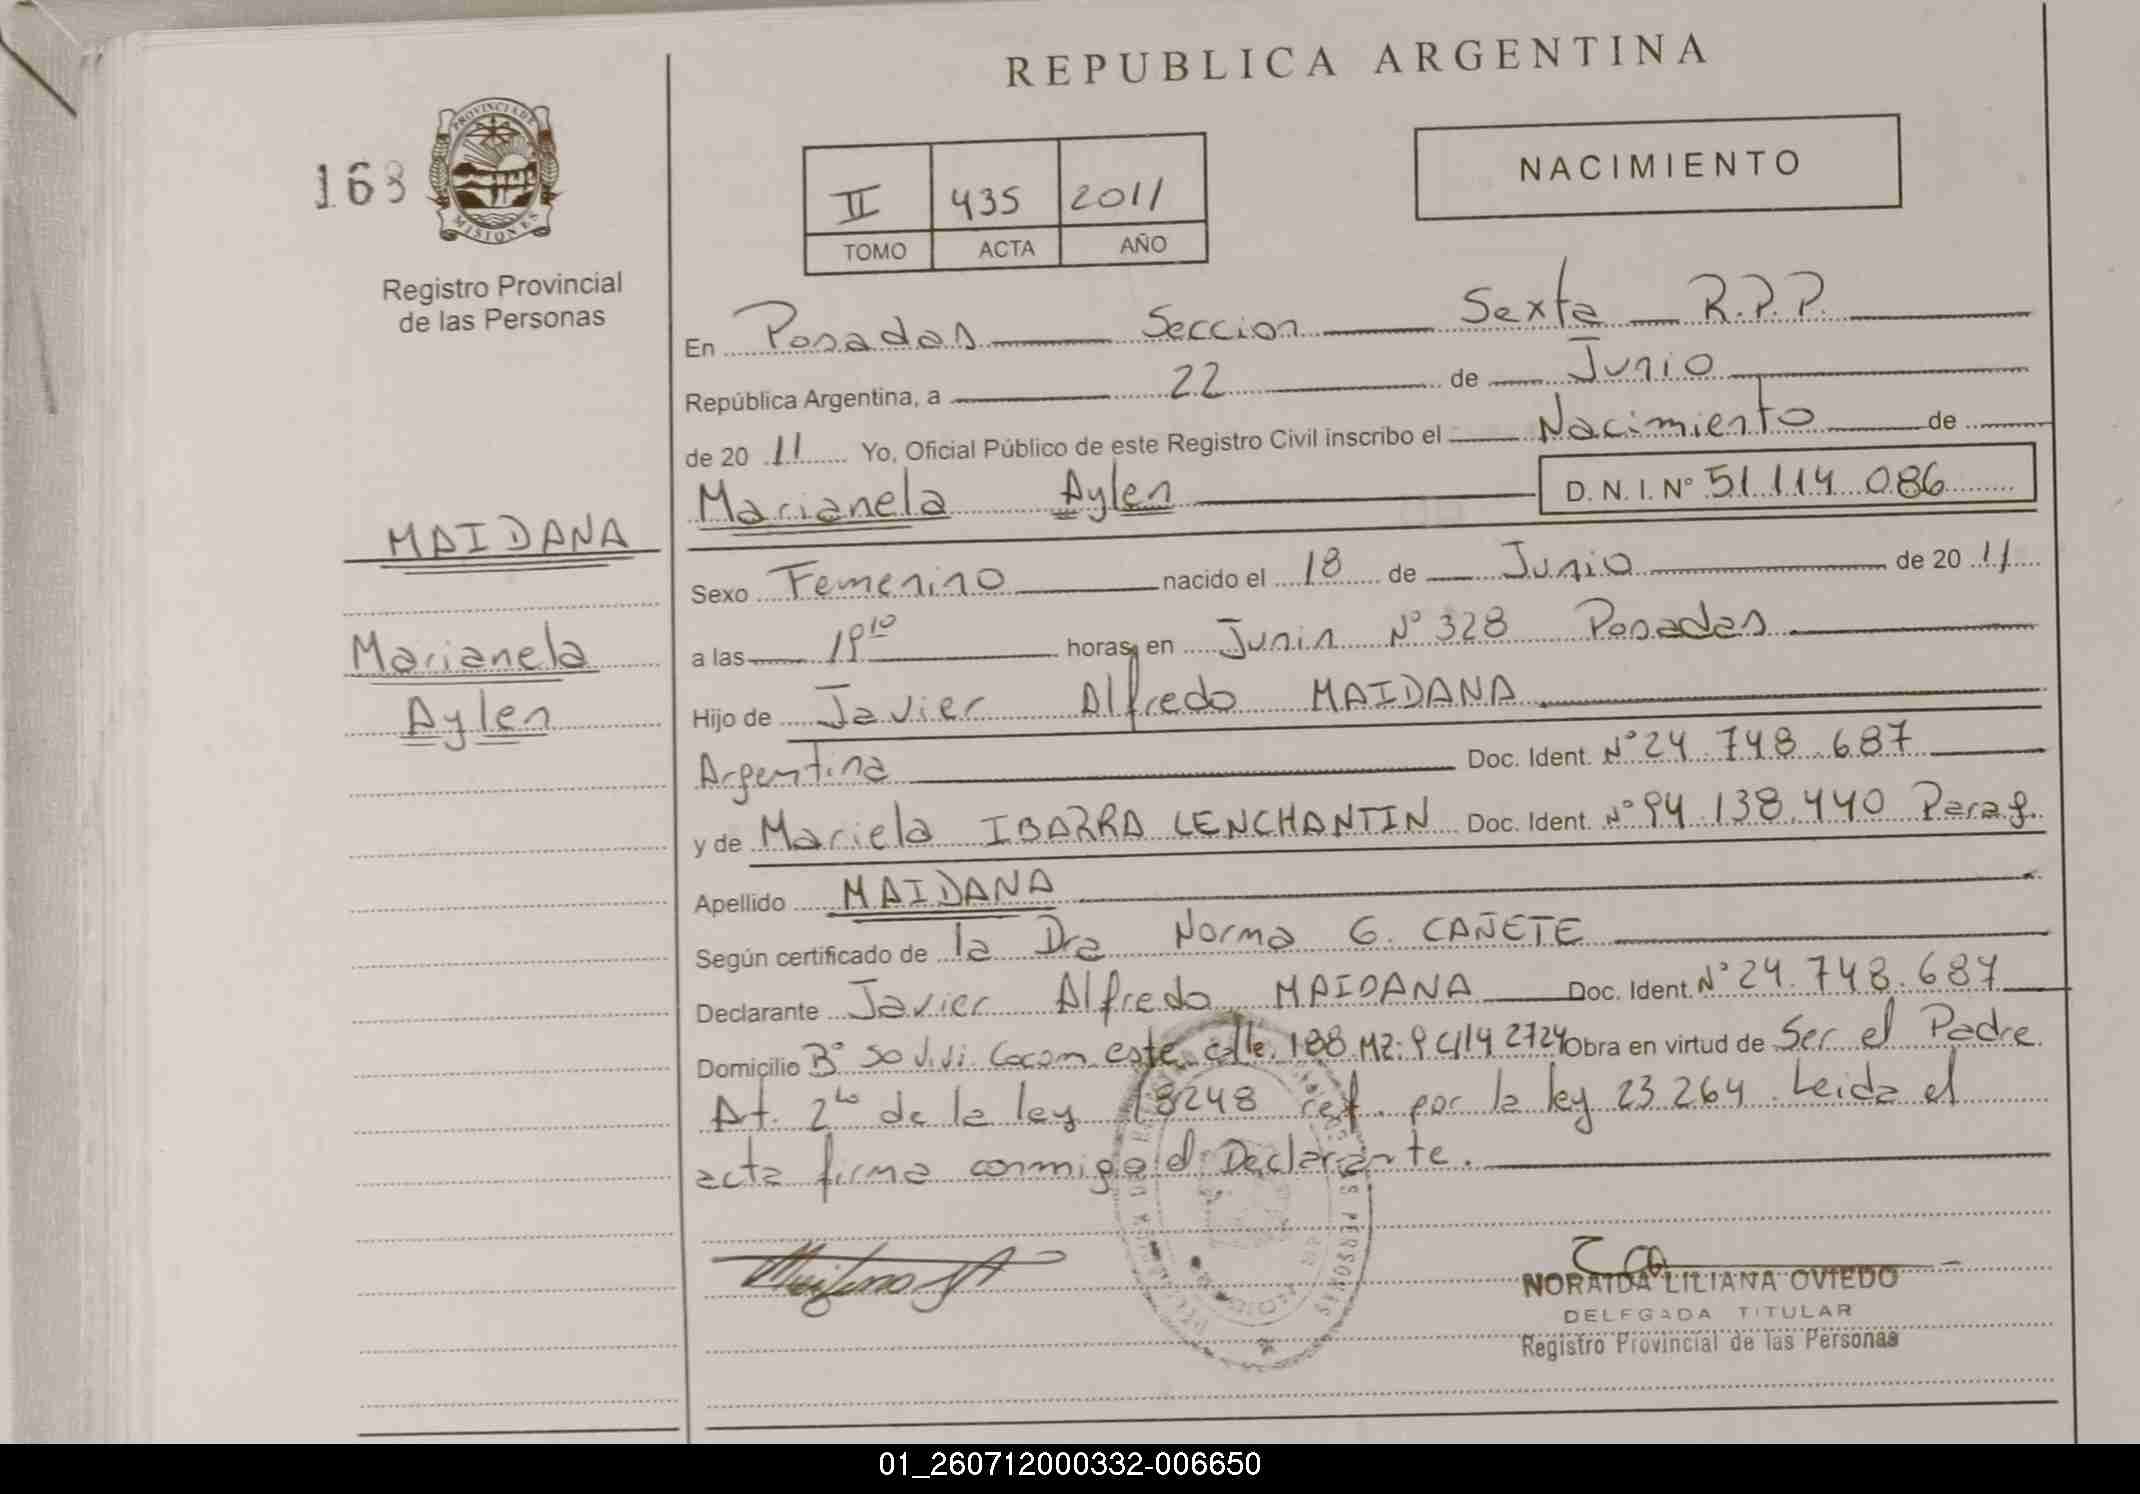 REPUBLICA ARGENTINA
163
PROVINCIA DE
MISIONES
Registro Provincial
de las Personas
II 435 2011
TOMO ACTA AÑO
NACIMIENTO
En Posadas Seccion Sexta R.P.P.
República Argentina, a 22 de Junio
de 2011 Yo, Oficial Público de este Registro Civil inscribo el Nacimiento de
Marianela Aylen D. N. I. N° 51 114 086
MAIDANA
Marianela
Aylen
Sexo Femenino nacido el 18 de Junio de 2011
a las 19 10 horas, en Junin N° 328 Posadas
Hijo de Javier Alfredo MAIDANA
Argentina Doc. Ident. N° 24 748 687
y de Mariela IBARRA LENCHANTIN Doc. Ident. N° 94.138.440 Parag.
Apellido MAIDANA
Según certificado de la Dra Norma G. CAÑETE
Declarante Javier Alfredo MAIDANA Doc. Ident. N° 24.748.687
Domicilio B° 50 Vivi este calle 188 MZ: 9 C/14 2724 Obra en virtud de Ser el Padre
At. 2do de la ley 18248 ref. por la ley 23.264. Leida el
acta firma conmigo el Declarante.
NORAIDA LILIANA OVIEDO
DELEGADA TITULAR
Registro Provincial de las Personas
01_260712000332-006650